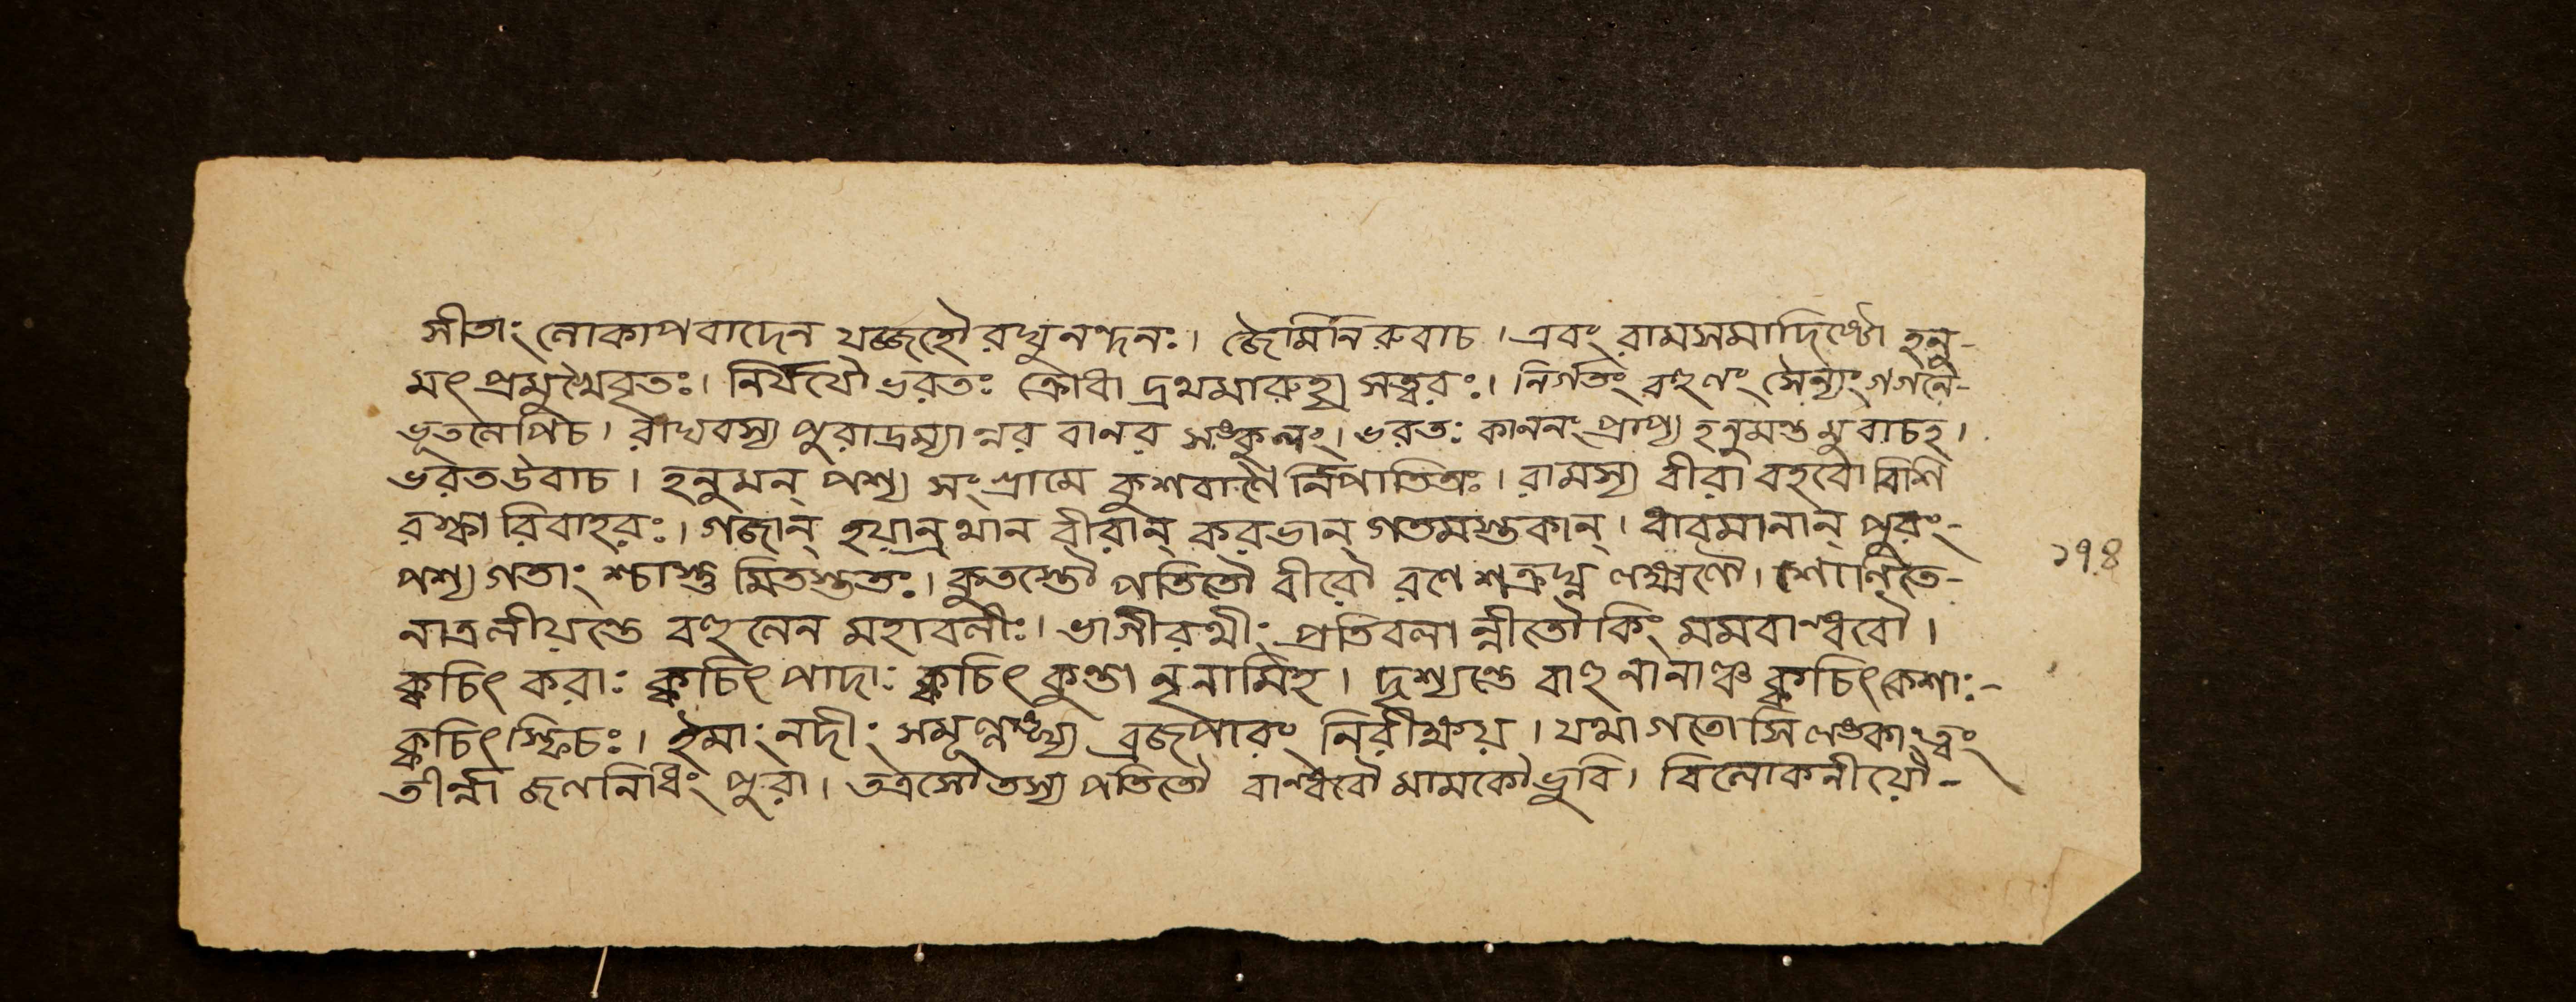 সীতাং লোকাপবাদেন যজ্জহৌ রঘুনন্দনঃ। জৈমিনিরুবাচ। এবং রামসমাদিষ্টো হনু-
মৎ প্রমুখৈবৃতঃ। নির্যযৌ ভরতঃ ক্রোধা দ্রথমারুহ্য সত্বরঃ। নির্গতং বহুণং সৈন্যং গগনে-
ভূতলেপিচ। রাঘবস্য পুরাদ্রম্যা ন্নর বানর সঙ্কুলং। ভরতঃ কাননং প্রাপ্য হনুমন্ত মুবাচহ।
ভরতউবাচ। হনুমন্ পশ্য সংগ্রামে কুশবাণৈ র্নিপাতিতাঃ। রামস্য বীরা বহবো বিশি
রস্কা রিবাহরঃ। গজান্ হয়ান্রথান বীরান্ করভান্ গতমস্তকান্। ধাবমানান্ পুরং-
পশ্য গতাং শ্চাস্তু মিতস্ততঃ। কুতস্তৌ পতিতৌ বীরৌ রণে শত্রুঘ্ন লক্ষ্মণৌ। শোনিতে-
নাত্রলীয়ন্তে বহুলেন মহাবলীঃ। ভাগীরথীং প্রতিবলা ন্নীতৌ কিং মমবান্ধবৌ।
ক্কচিৎ করাঃ ক্কচিৎ পাদাঃ ক্কচিৎ কুণ্ডা নৃনামিহ। দৃশ্যন্তে বাহু নানাঞ্চ ক্কচিৎ কেশাঃ-
ক্কচিৎ স্ফিচঃ। ইমাং নদীং সমূল্লঙ্ঘ্য ব্রজপারং নিরীক্ষয়। যথা গতোসি লঙ্কাং ত্বং
তীর্ন্না জলনিধিং পুরা। তত্রসৌ তস্য পতিতৌ বান্ধবৌ মামকৌ ভুবি। বিলোকনীয়ৌ-
১৭৪